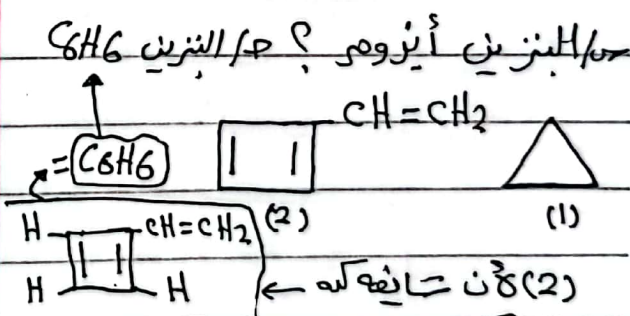 س/البنزين أيزومر ؟ ج/ البنزين C6H6
CH=CH2
= C6H6
(2) (1)
H CH=CH2
H H
(2) لأن ←